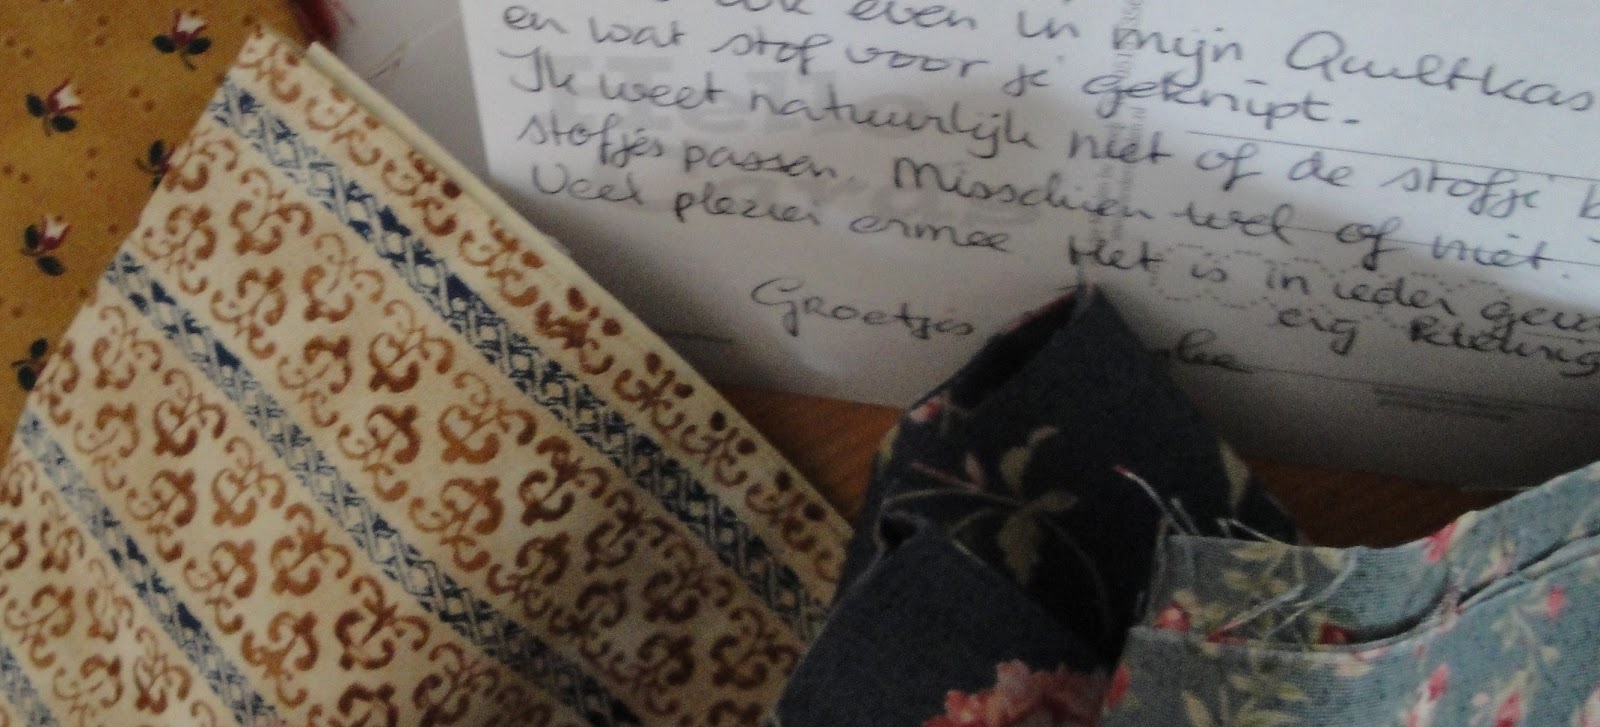 even in mijn Quiltkas
en wat stof voor je geknipt.
Ik weet natuurlijk niet of de stofje
stofjes passen. Misschien wel of niet.
Veel plezier ermee Het is in ieder geva
erg kleurig
Groetjes